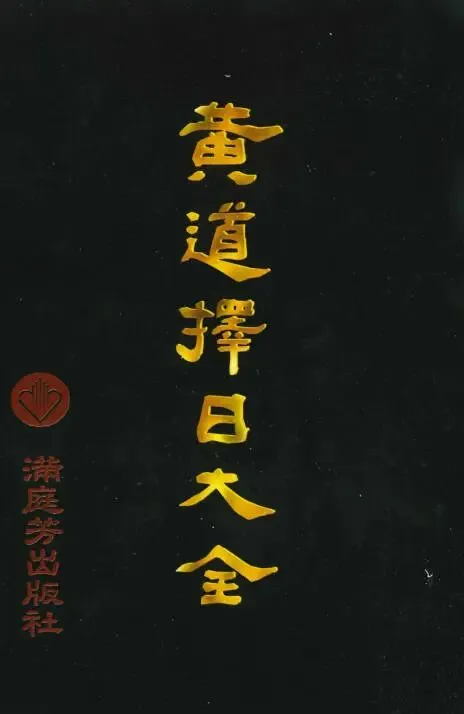 黄道擇日大全
满庭芳出版社